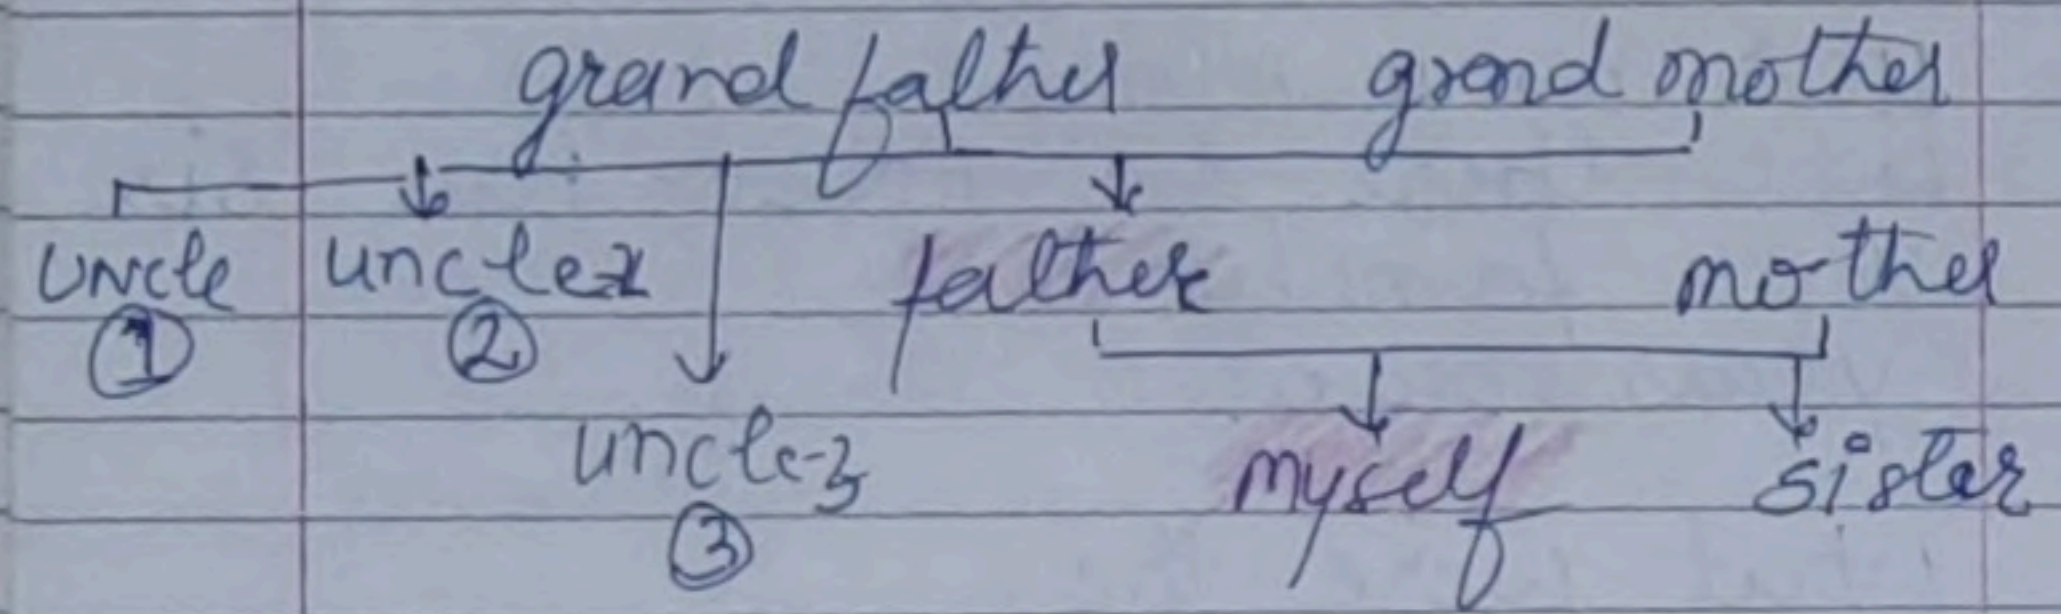 grand father grand mother
uncle uncle-2 father mother
1 2
uncle-3 myself sister
3